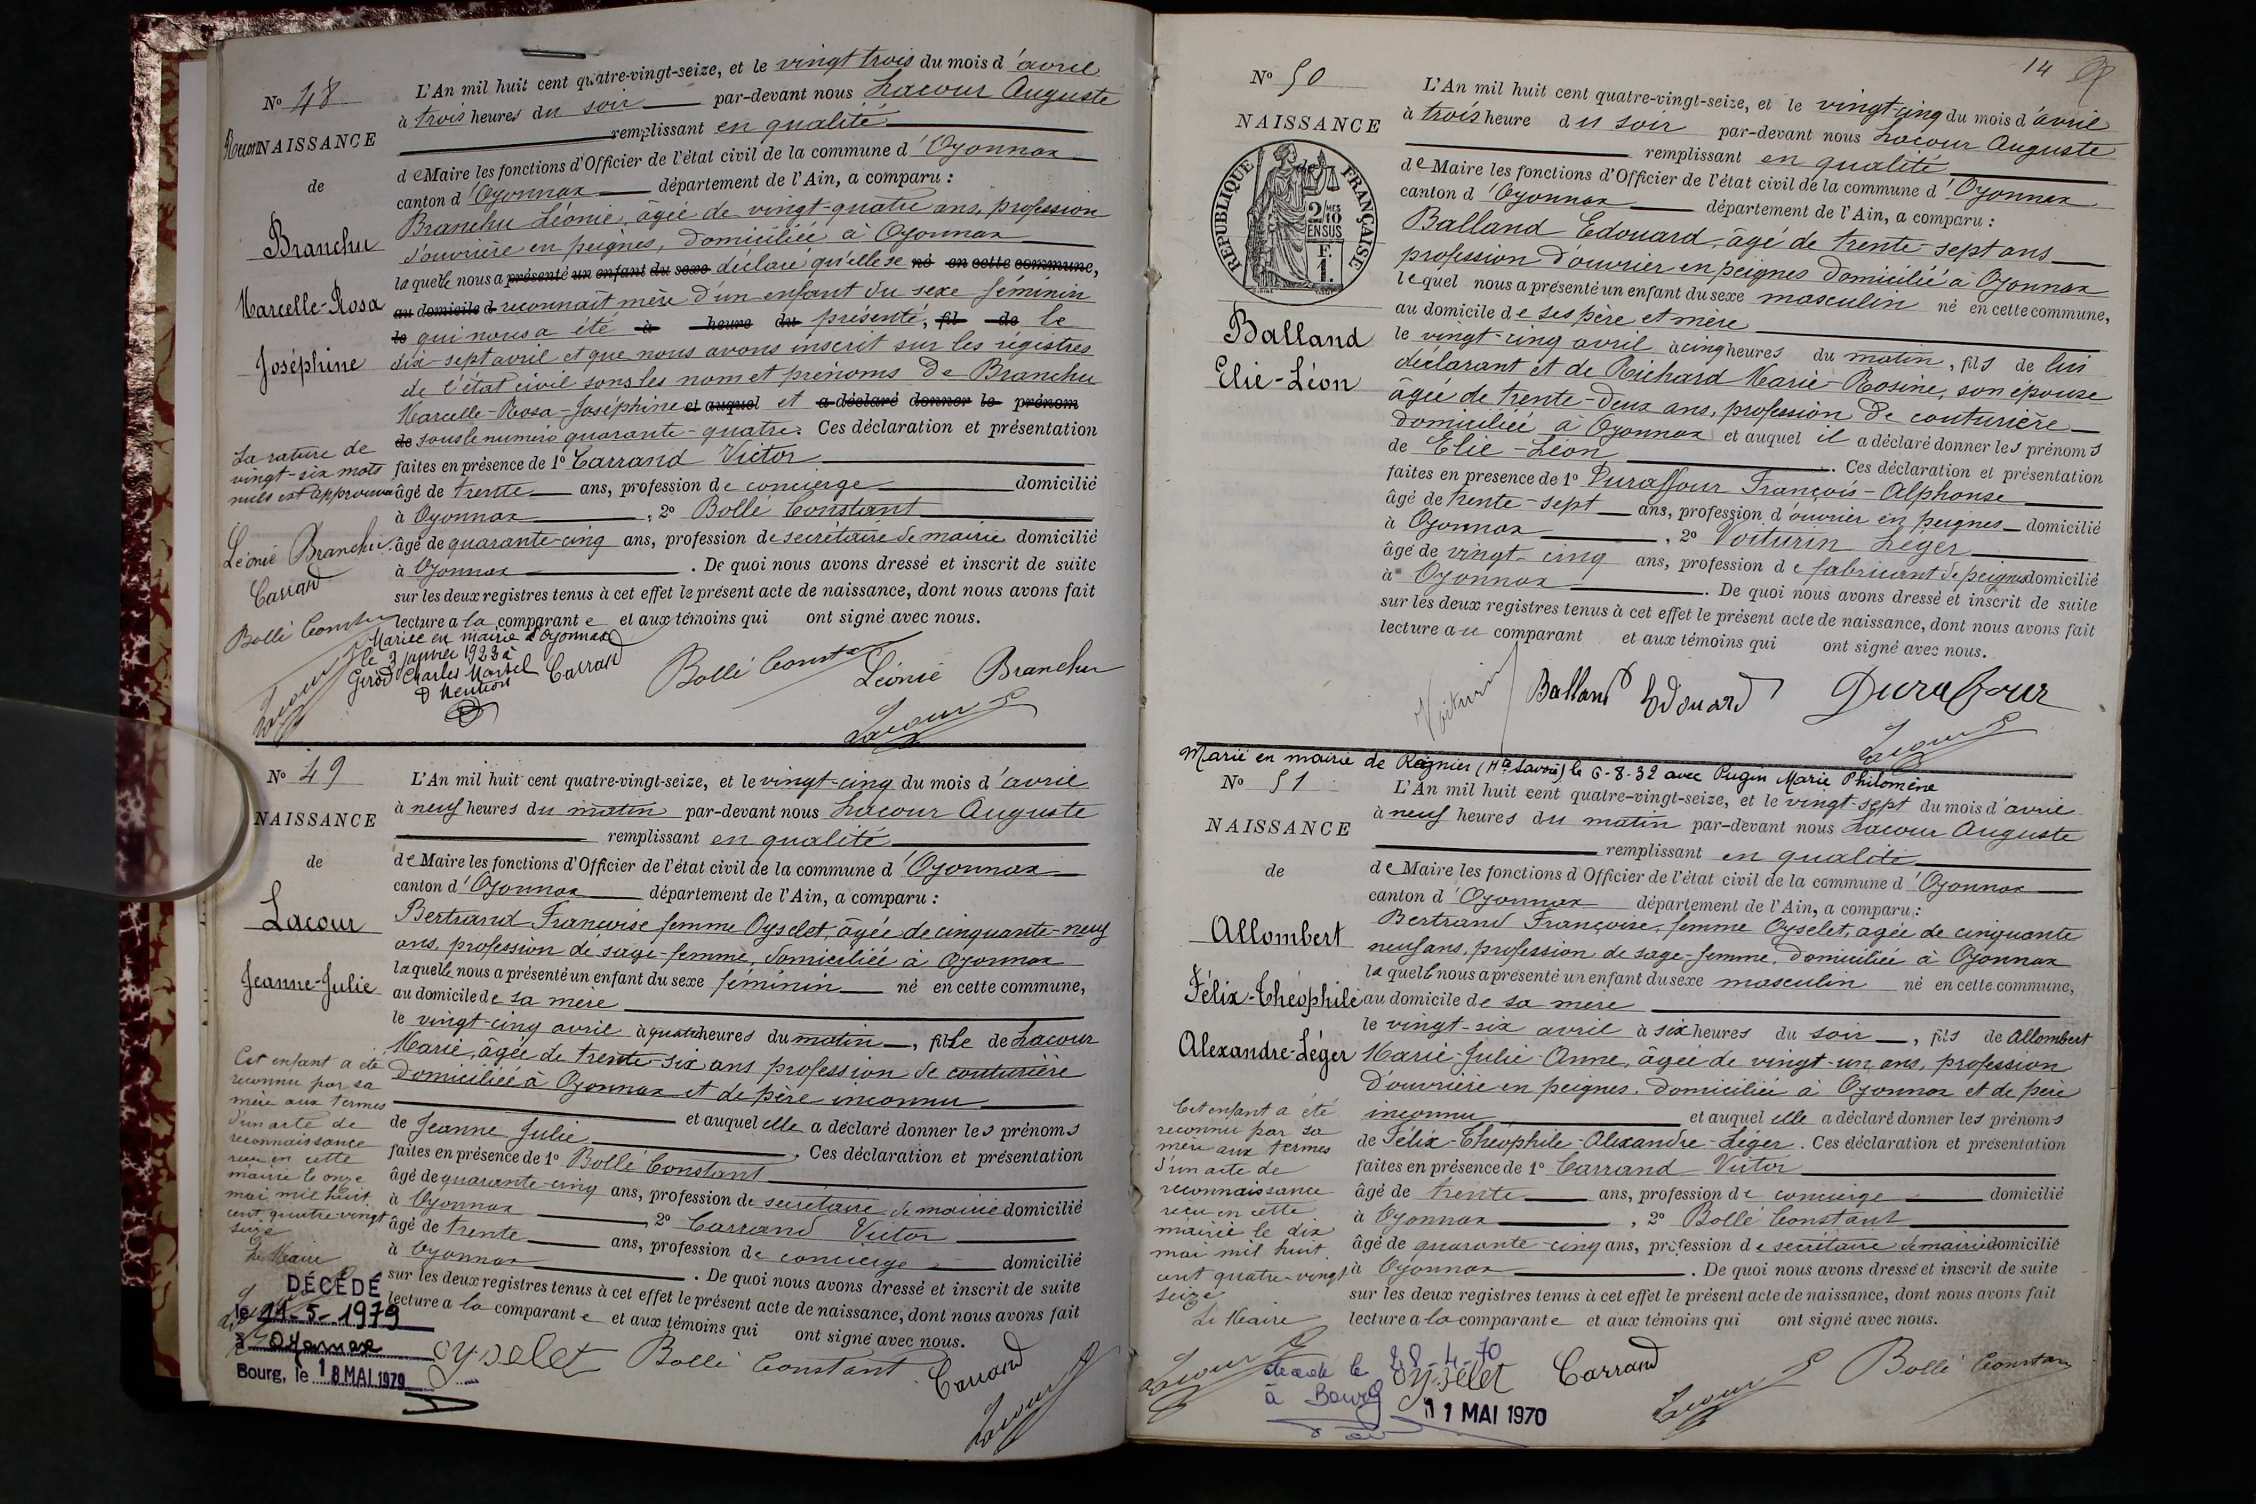 No 48
NAISSANCE
de
Branchu
Marcelle-Rosa
Joséphine
L'An mil huit cent quatre-vingt-seize, et le vingt trois du mois d'avril
à trois heures du soir par-devant nous Lacour Auguste
remplissant en qualité
de Maire les fonctions d'Officier de l'état civil de la commune d'Oyonnax
canton d'Oyonnax département de l'Ain, a comparu :
Branchu Léonie, âgée de vingt-quatre ans, profession
d'ouvrière en peignes, domiciliée à Oyonnax
laquelle nous a présenté un enfant du sexe déclaré qu'elle se né en cette commune,
au domicile d reconnaît mère d'un enfant du sexe féminin
le qui nous a été à heure du présenté, fil de le
dix-sept avril et que nous avons inscrit sur les régistres
de l'état civil sous les nom et prénoms de Branchu
Marcelle-Rosa-Joséphine et auquel et a déclaré donner le prénom
de sous le numéro quarante-quatre. Ces déclaration et présentation
faites en présence de 1o Carrand Victor
âgé de trente ans, profession de concierge domicilié
à Oyonnax, 2o Bollé Constant
âgé de quarante-cinq ans, profession de secrétaire de mairie domicilié
à Oyonnax. De quoi nous avons dressé et inscrit de suite
sur les deux registres tenus à cet effet le présent acte de naissance, dont nous avons fait
lecture a la comparante et aux témoins qui ont signé avec nous.
La rature de
vingt-six mots
nuls est approuvée
Léonie Branchu
Carrand
Bollé Constant
Mariée en mairie d'Oyonnax
le 3 janvier 1923 à
Girod Charles Marcel
D Mention
Carrand Bollé Constant Léonie Branchu
Lacour
No 49
NAISSANCE
de
Lacour
Jeanne-Julie
L'An mil huit cent quatre-vingt-seize, et le vingt-cinq du mois d'avril
à neuf heures du matin par-devant nous Lacour Auguste
remplissant en qualité
de Maire les fonctions d'Officier de l'état civil de la commune d'Oyonnax
canton d'Oyonnax département de l'Ain, a comparu :
Bertrand Françoise femme Oyselet, âgée de cinquante-neuf
ans, profession de sage-femme, domiciliée à Oyonnax
laquelle nous a présenté un enfant du sexe féminin né en cette commune,
au domicile de sa mère
le vingt-cinq avril à quatre heures du matin, fille de Lacour
Marie, âgée de trente-six ans profession de couturière
domiciliée à Oyonnax et de père inconnu
et auquel elle a déclaré donner les prénoms
de Jeanne Julie. Ces déclaration et présentation
faites en présence de 1o Bollé Constant
âgé de quarante-cinq ans, profession de secrétaire de mairie domicilié
à Oyonnax 2o Carrand Victor
âgé de trente ans, profession de concierge domicilié
à Oyonnax. De quoi nous avons dressé et inscrit de suite
sur les deux registres tenus à cet effet le présent acte de naissance, dont nous avons fait
lecture a la comparante et aux témoins qui ont signé avec nous.
Cet enfant a été
reconnu par sa
mère aux termes
d'un acte de
reconnaissance
reçu en cette
mairie le onze
mai mil huit
cent quatre vingt
seize
Le Maire
DÉCÉDÉ
le 11-5-1979
à Oyonnax
Bourg, le 18 MAI 1979
Oyselet Bollé Constant Carrand
Lacour
14
No 50
NAISSANCE
RÉPUBLIQUE FRANÇAISE
2/10
EN SUS
F.
1.
Balland
Elie-Léon
L'An mil huit cent quatre-vingt-seize, et le vingt-cinq du mois d'avril
à trois heure du soir par-devant nous Lacour Auguste
remplissant en qualité
de Maire les fonctions d'Officier de l'état civil de la commune d'Oyonnax
canton d'Oyonnax département de l'Ain, a comparu :
Balland Edouard, âgé de trente-sept ans
profession d'ouvrier en peignes domicilié à Oyonnax
lequel nous a présenté un enfant du sexe masculin né en cette commune,
au domicile de ses père et mère
le vingt-cinq avril à cinq heures du matin, fils de lui
déclarant et de Richard Marie-Rosine, son épouse
âgée de trente-deux ans, profession de couturière
domiciliée à Oyonnax et auquel il a déclaré donner les prénoms
de Elie-Léon. Ces déclaration et présentation
faites en presence de 1o Duraffour François-Alphonse
âgé de trente-sept ans, profession d'ouvrier en peignes domicilié
à Oyonnax, 2o Voiturin Léger
âgé de vingt-cinq ans, profession de fabricant de peignes domicilié
à Oyonnax. De quoi nous avons dressé et inscrit de suite
sur les deux registres tenus à cet effet le présent acte de naissance, dont nous avons fait
lecture au comparant et aux témoins qui ont signé avec nous.
Voiturin Balland Edouard Duraffour
Lacour
Marié en mairie de Régnier (Hte Savoie) le 6-8-32 avec Pugin Marie Philomène
No 51
NAISSANCE
de
Allombert
Félix-Théophile
Alexandre-Léger
L'An mil huit cent quatre-vingt-seize, et le vingt-sept du mois d'avril
à neuf heures du matin par-devant nous Lacour Auguste
remplissant en qualité
de Maire les fonctions d'Officier de l'état civil de la commune d'Oyonnax
canton d'Oyonnax département de l'Ain, a comparu :
Bertrand Françoise, femme Oyselet, âgée de cinquante
neuf ans, profession de sage-femme, domiciliée à Oyonnax
laquelle nous a présenté un enfant du sexe masculin né en cette commune,
au domicile de sa mère
le vingt-six avril à six heures du soir, fils de Allombert
Marie-Julie-Anne, âgée de vingt-un ans, profession
d'ouvrière en peignes, domiciliée à Oyonnax et de père
inconnu et auquel elle a déclaré donner les prénoms
de Félix-Théophile-Alexandre-Léger. Ces déclaration et présentation
faites en présence de 1o Carrand Victor
âgé de trente ans, profession de concierge domicilié
à Oyonnax, 2o Bollé Constant
âgé de quarante-cinq ans, profession de secrétaire de mairie domicilié
à Oyonnax. De quoi nous avons dressé et inscrit de suite
sur les deux registres tenus à cet effet le présent acte de naissance, dont nous avons fait
lecture a la comparante et aux témoins qui ont signé avec nous.
Cet enfant a été
reconnu par sa
mère aux termes
d'un acte de
reconnaissance
reçu en cette
mairie le dix
mai mil huit
cent quatre-vingt
seize
Le Maire
Lacour
décédé le 28-4-70
à Bourg
11 MAI 1970
Oyselet Carrand
Lacour Bollé Constant